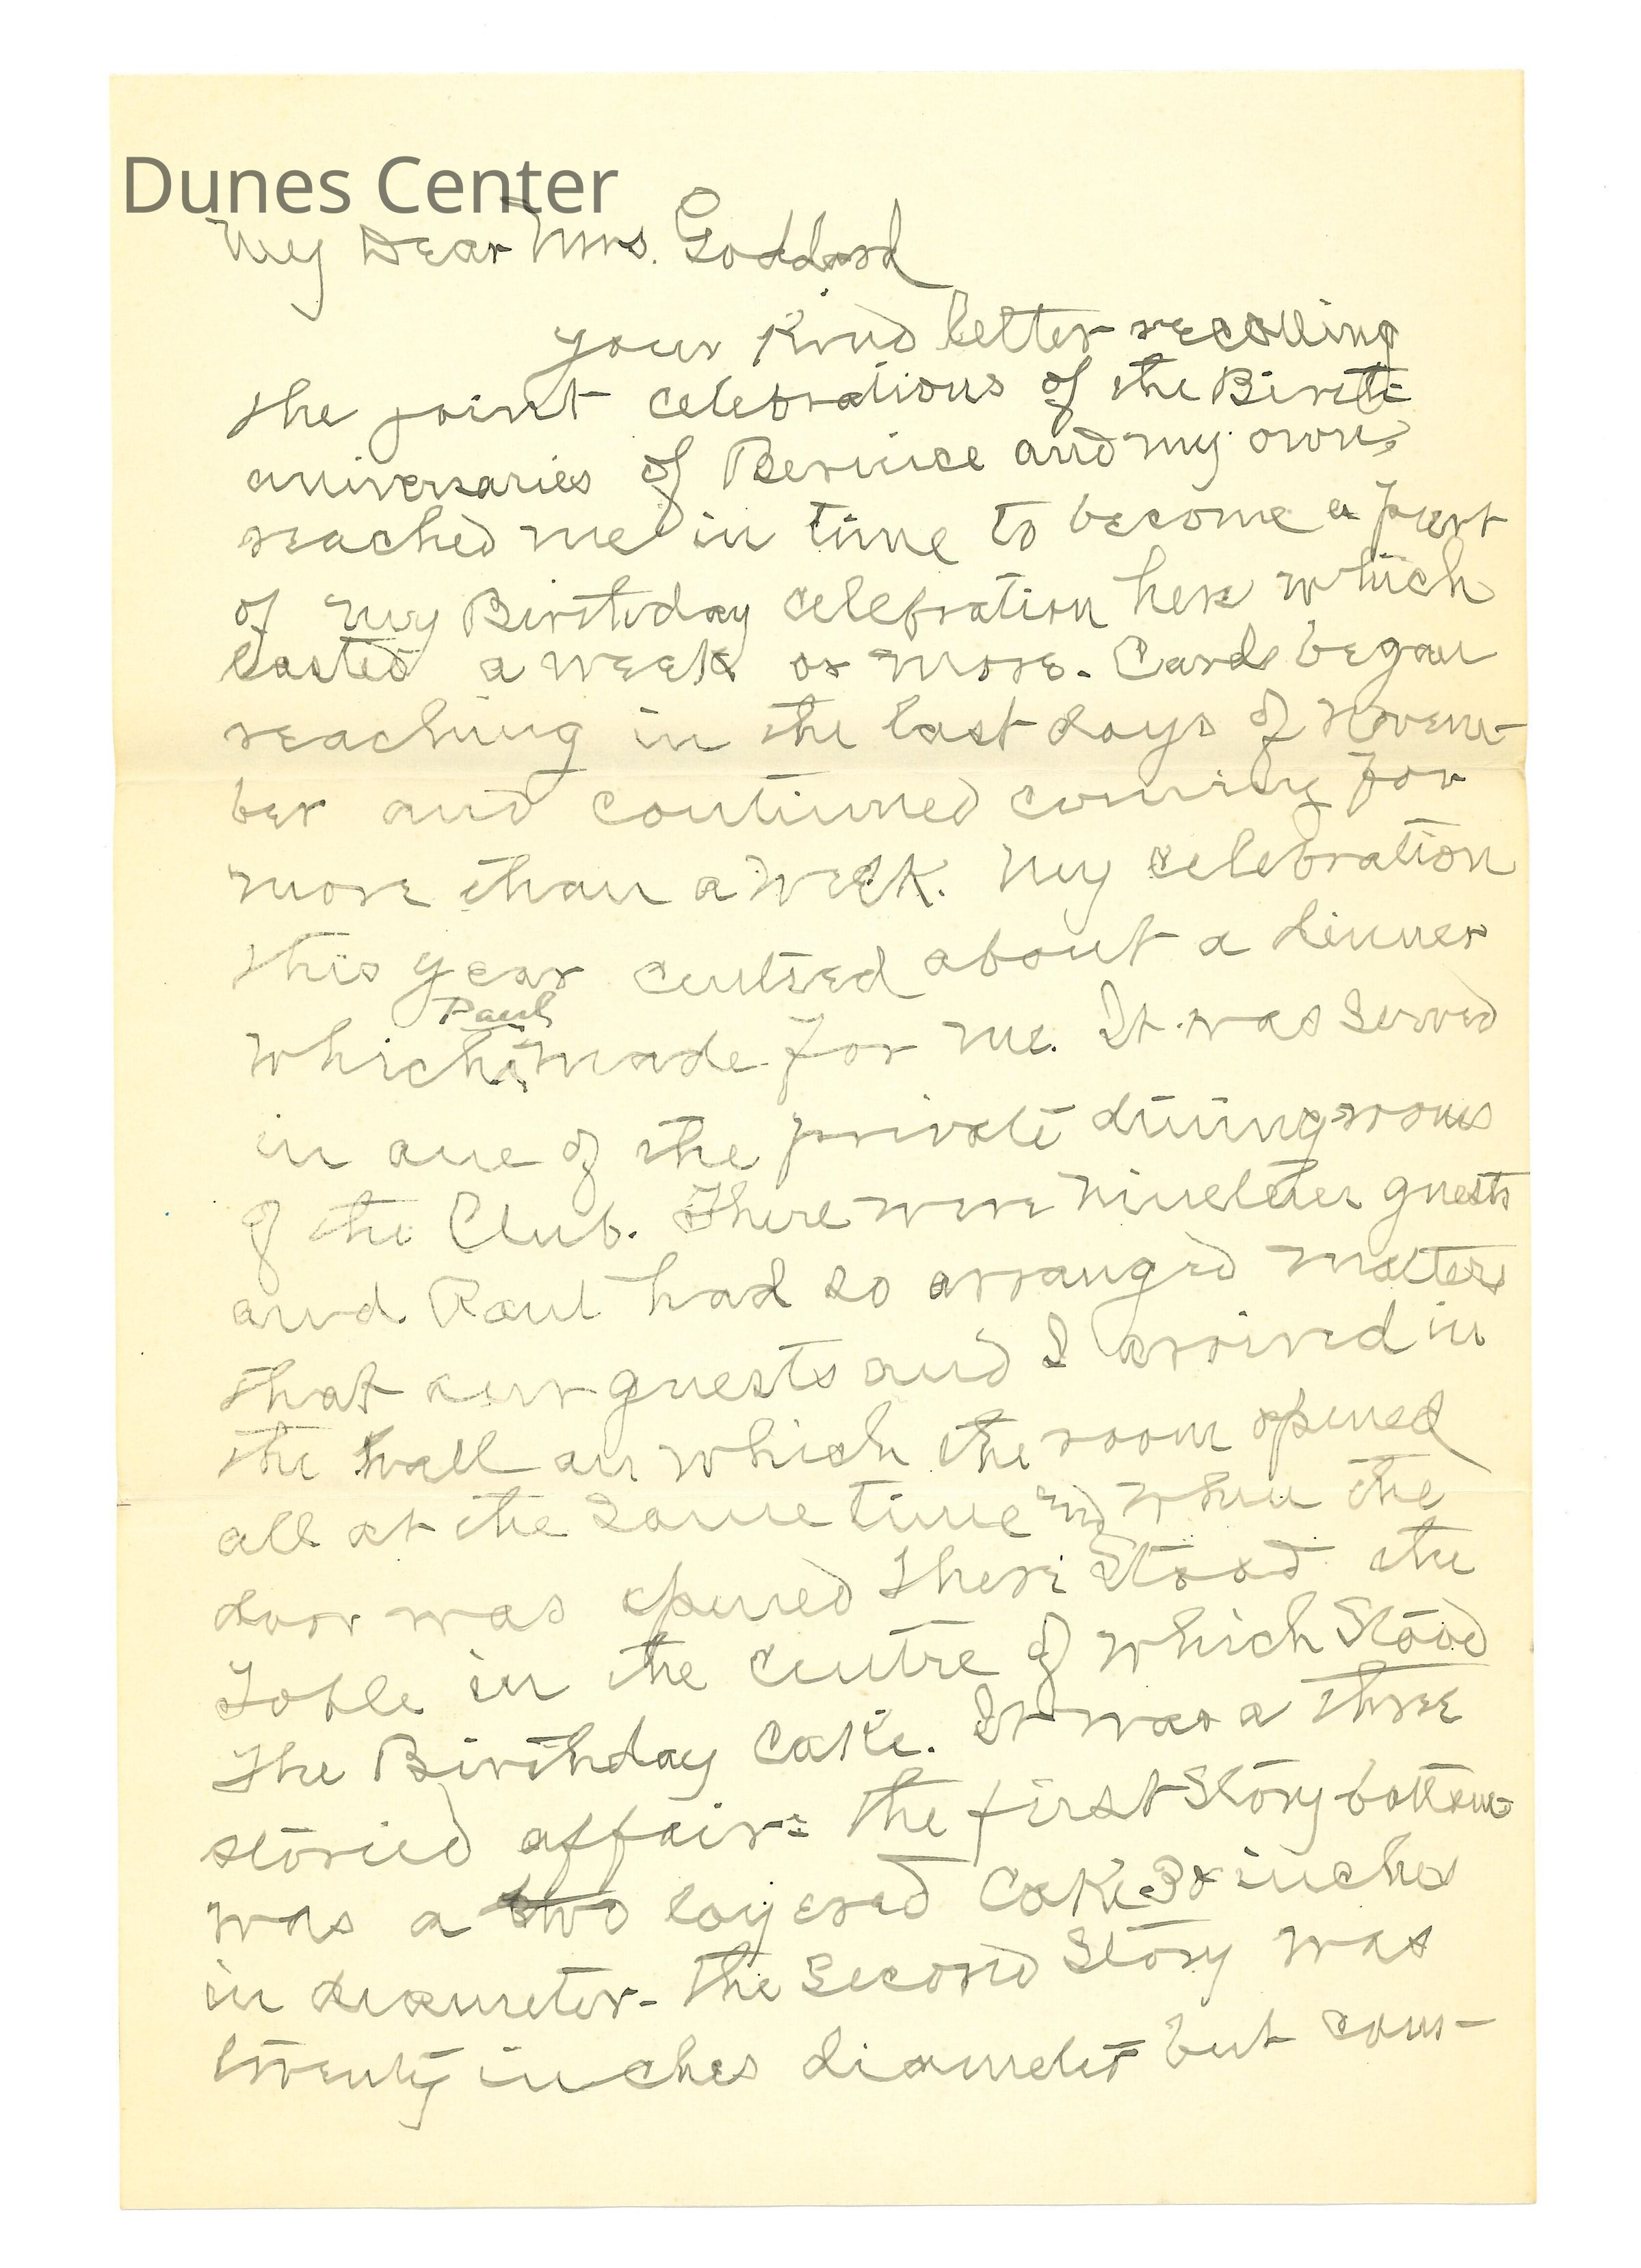 Dunes Center
My Dear Mrs. Goddard
your kind letter recalling
the joint celebrations of the Birth
aniversaries of Bernice and my own,
reached me in time to become a part
of my Birthday celebration here which
lasted a week or more. Cards began
reaching in the last days of Novem-
ber and continued coming for
more than a week. My celebration
this year centred about a dinner
Paul
which made for me. It was served
in one of the private dining rooms
of the Club. There were nineteen guests
and Paul had so arranged matters
that our guests and I arrived in
the hall on which the room opened
all at the same time and when the
door was opened there stood the
Table in the centre of which stood
The Birthday cake. It was a three
storied affair: the first story bottom
was a two layered cake inches
in diameter - the second story was
twenty inches diameter but com-